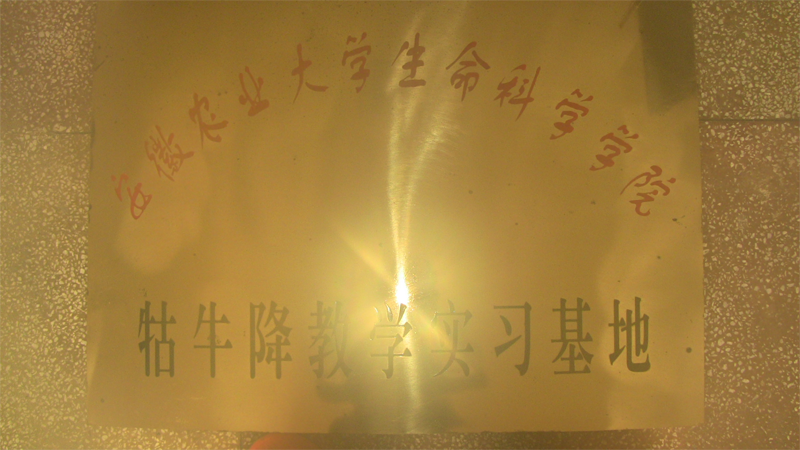 安徽农业大学生命科学学院
牯牛降教学实习基地